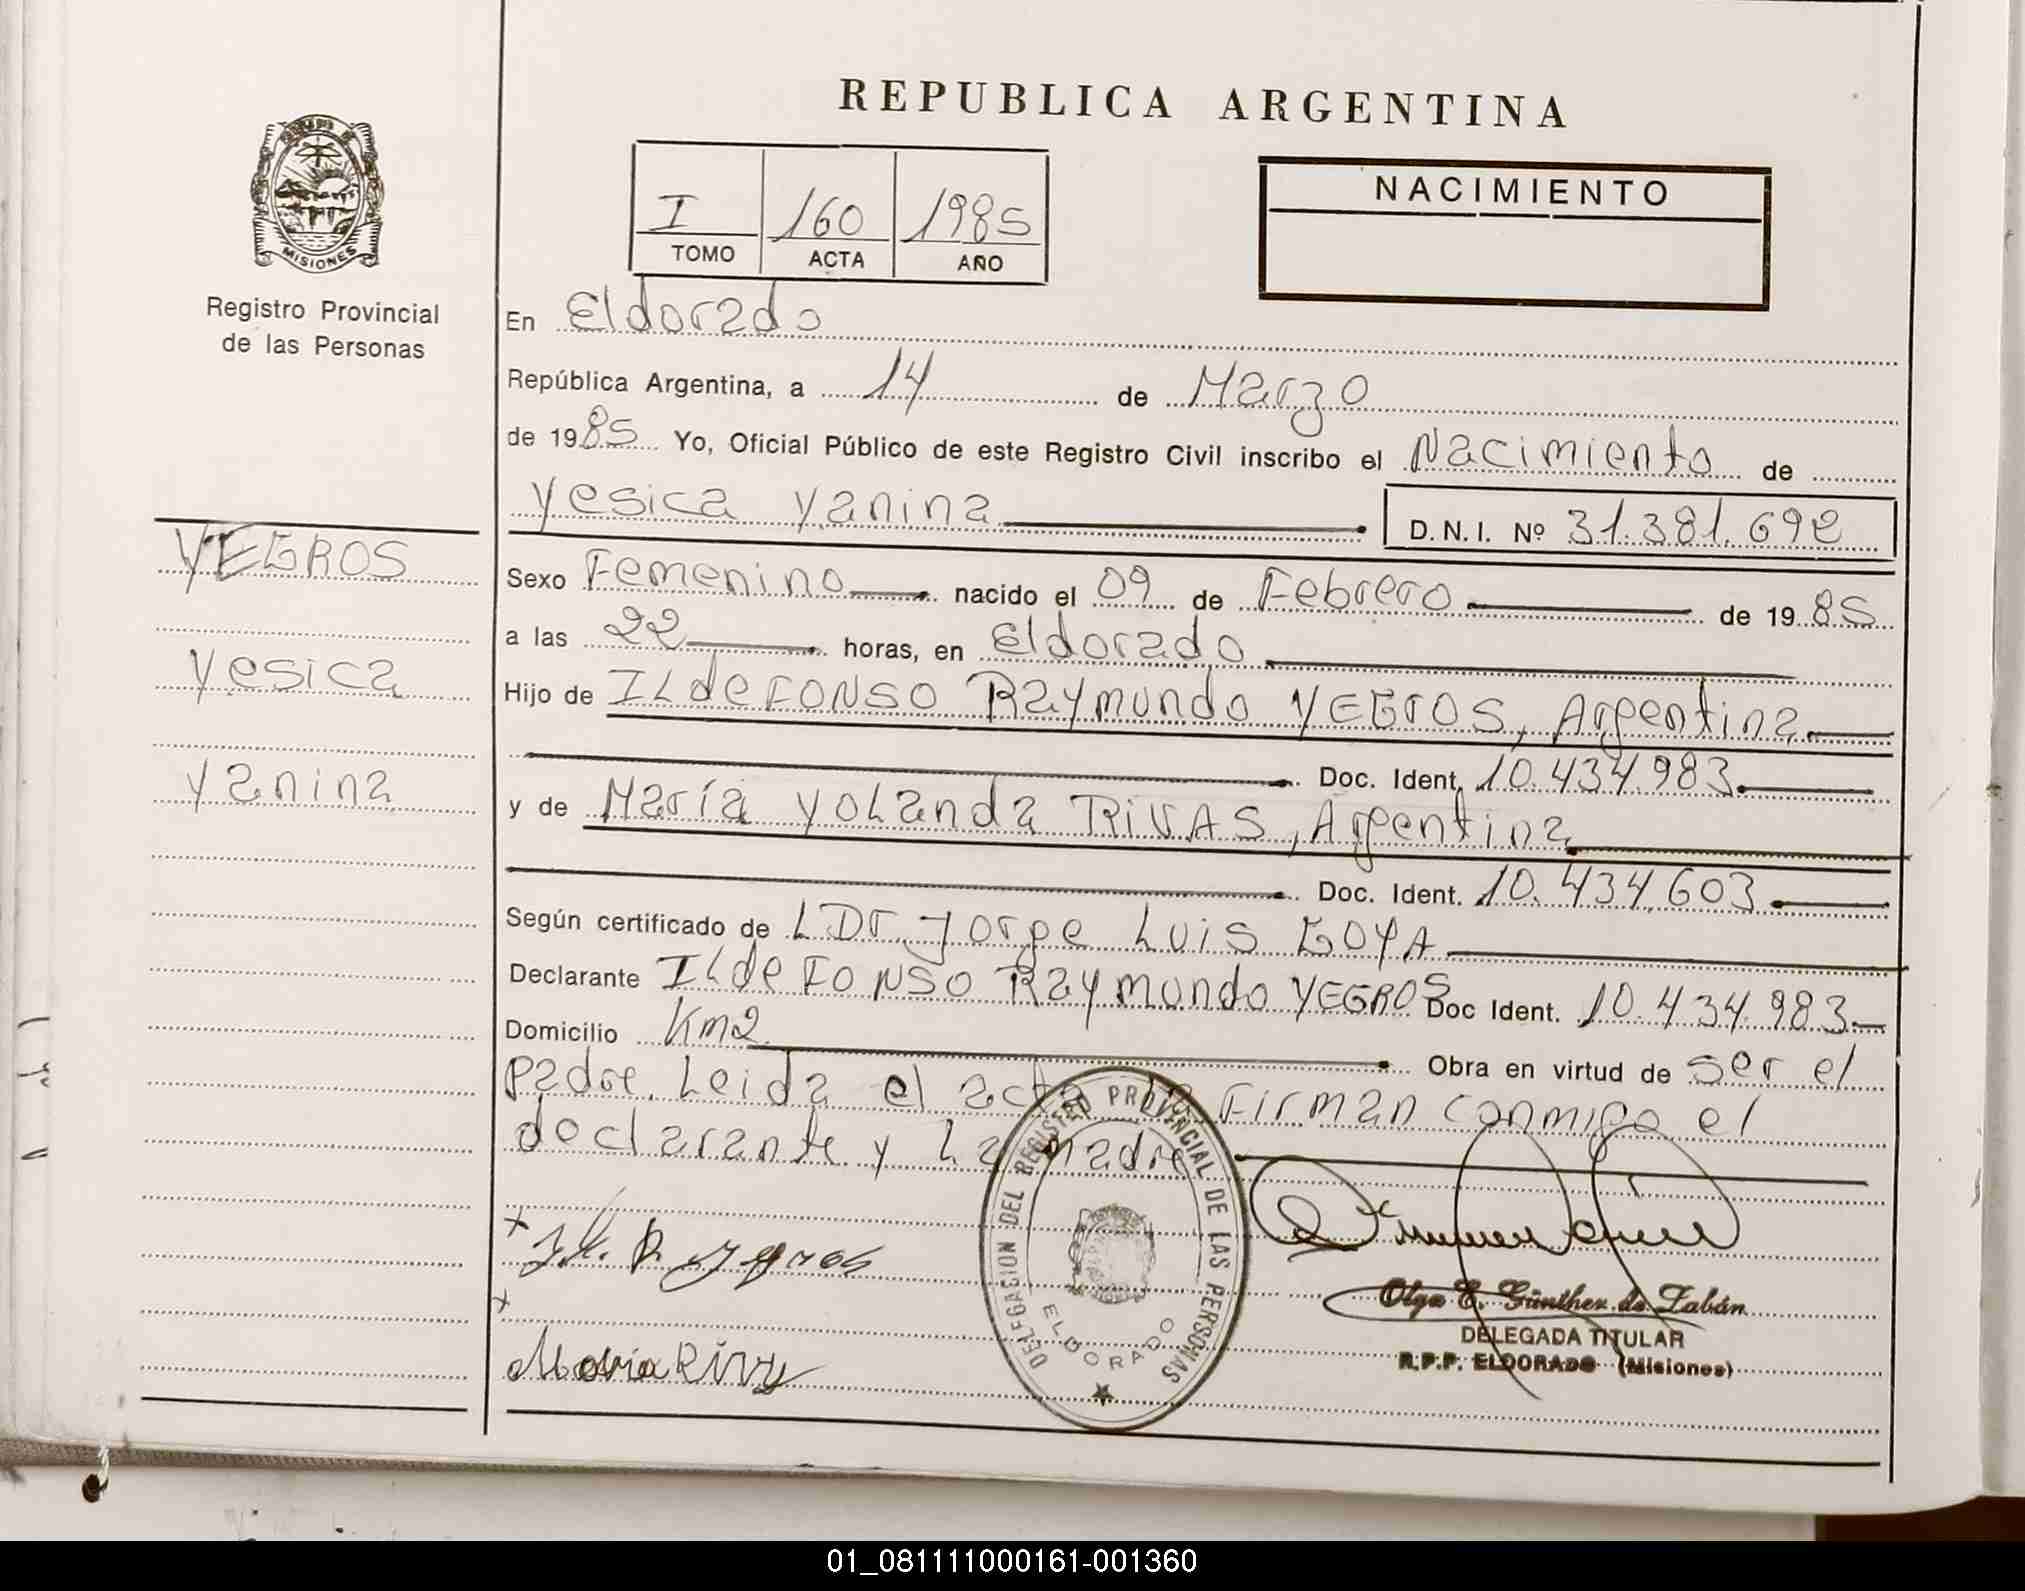 REPUBLICA ARGENTINA
MISIONES
Registro Provincial
de las Personas
I 160 1985
TOMO ACTA AÑO
NACIMIENTO
En Eldorado
República Argentina, a 14 de Marzo
de 1985 Yo, Oficial Público de este Registro Civil inscribo el Nacimiento de
Yesica Yanina D.N.I. Nº 31.381.692
YEGROS
Yesica
Yanina
Sexo Femenino nacido el 09 de Febrero de 1985
a las 22 horas, en Eldorado
Hijo de ILdeFONSO Raymundo YEGROS, Argentina
Doc. Ident. 10.434.983
y de María YOLanda RiVAS, Argentina
Doc. Ident. 10.434.603
Según certificado de L Dr. Jorge Luis GOYA
Declarante ILdeFONSO Raymundo YEGROS Doc Ident. 10.434.983
Domicilio Km2 Obra en virtud de ser el
padre. Leida el acta La Firman conmigo el
declarante y La madre
DELEGACION DEL REGISTRO PROVINCIAL DE LAS PERSONAS
ELDORADO
Maria
Olga E. Günther de Zabán
DELEGADA TITULAR
R.P.P. ELDORADO (Misiones)
01_081111000161-001360